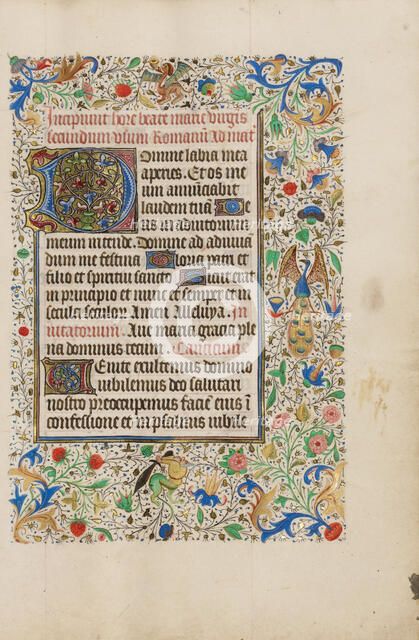 Incipiunt hore beate marie virgīs
secundum usum Romanū Ad mat̄
Domine labia mea
aperies. Et os me
um annunciabit
laudem tuā. De
us in adiutorium
meum intende. Domine ad adiuvā
dum me festina. Gloria patri et
filio et spiritui sancto. Sicut erat
in principio et nunc et semper et in
secula seculorum Amen. Alleluya. In
vitatorium. Ave maria gracia ple
na dominus tecum. Canticum
Venite exultemus domino
iubilemus deo salutari
nostro preoccupemus faciē eius ī
confessione et in psalmis iubile